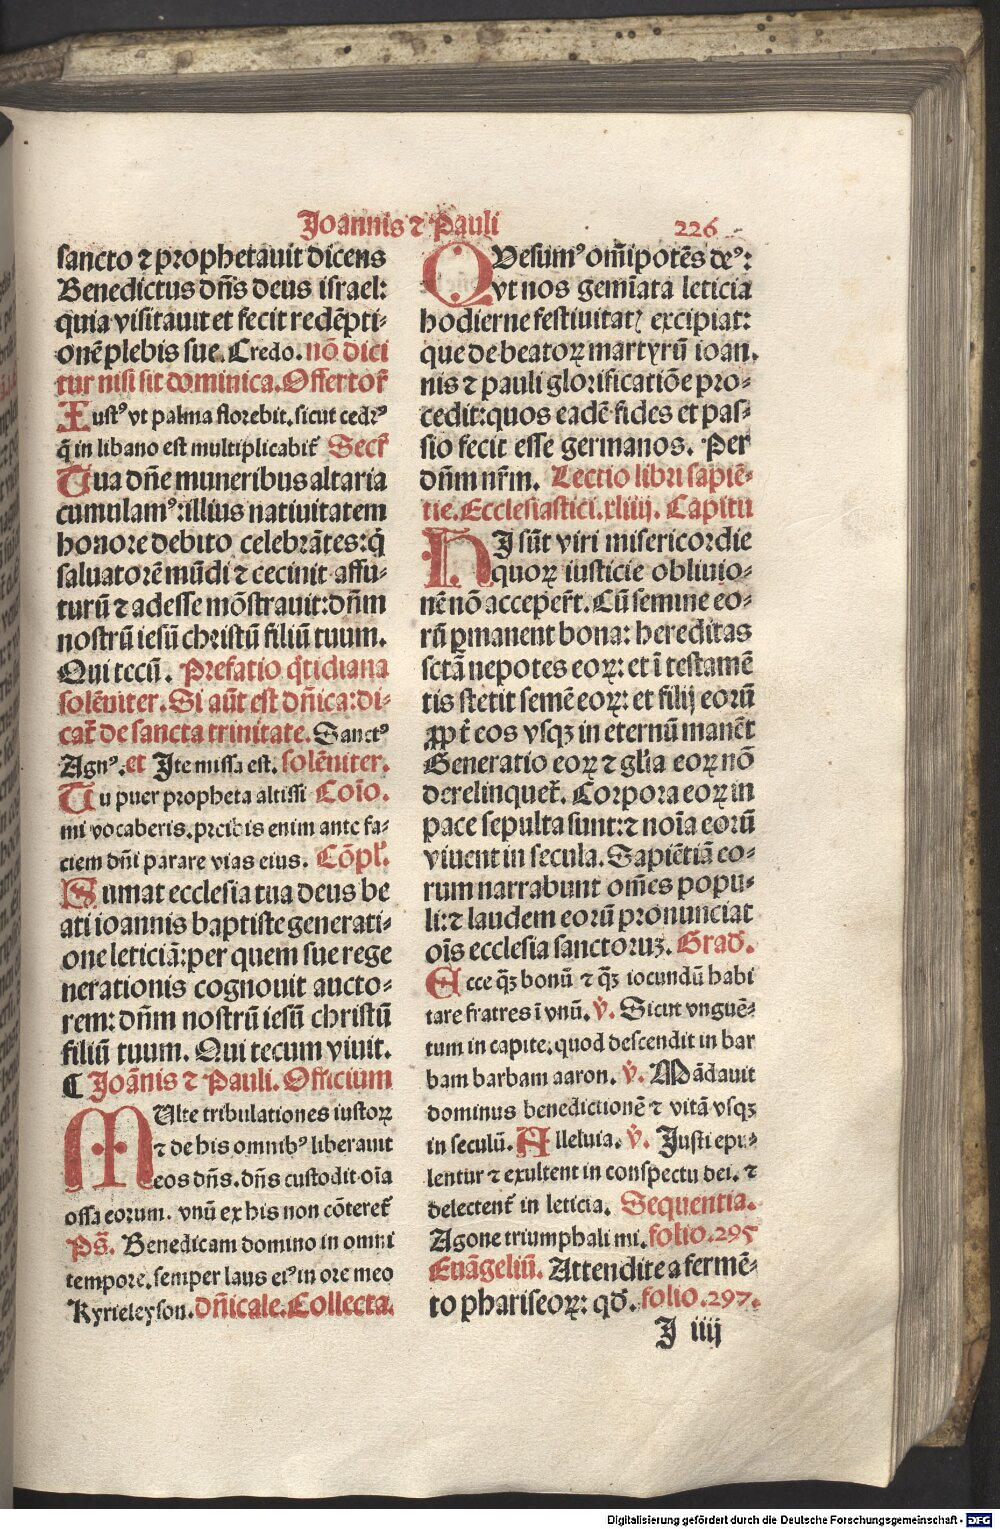 Joannis ⁊ Pauli
226
sancto ⁊ prophetauit dicens
Benedictus dñs deus israel:
quia visitauit et fecit redẽpti-
onẽ plebis sue. Credo. nõ dici
tur nisi sit dominica. Offertor̃
Iustꝰ vt palma florebit. sicut cedrꝰ
q̃ in libano est multiplicabit̃ Secr̃
Tua dñe muneribus altaria
cumulamꝰ: illius natiuitatem
honore debito celebrãtes: q̃
saluatorẽ mũdi ⁊ cecinit affu-
turũ ⁊ adesse mõstrauit: dñm
nostrũ iesũ christũ filiũ tuum.
Qui tecũ. Prefatio q̃tidiana
solẽniter. Si aũt est dñica: di-
cat̃ de sancta trinitate. Sanctꝰ
Agnꝰ. et Ite missa est. solẽniter.
Tu puer propheta altissi Coĩo.
mi vocaberis. preibis enim ante fa-
ciem dñi parare vias eius. Cõpl̃.
Sumat ecclesia tua deus be
ati ioannis baptiste generati-
one leticiã: per quem sue rege
nerationis cognouit aucto-
rem: dñm nostrũ iesũ christũ
filiũ tuum. Qui tecum viuit.
¶ Joãnis ⁊ Pauli. Officium
MUlte tribulationes iustoꝝ
⁊ de his omnibꝰ liberauit
eos dñs. dñs custodit oĩa
ossa eorum. vnũ ex his non cõteret̃
Ps̃. Benedicam domino in omni
tempore. semper laus eiꝰ in ore meo
Kyrieleyson. dñicale. Collecta.
QVesumꝰ om̃ipotẽs deꝰ:
vt nos gemĩata leticia
hodierne festiuitatꝭ excipiat:
que de beatoꝝ martyrũ ioan.
nis ⁊ pauli glorificatiõe pro-
cedit: quos eadẽ fides et pas-
sio fecit esse germanos. Per
dñm nr̃m. Lectio libri sapiẽ-
tie. Ecclesiastici. xliiij. Capitu
HI sũt viri misericordie
quoꝝ iusticie obliuio-
nẽ nõ acceper̃t. Cũ semine eo-
rũ ꝑmanent bona: hereditas
sctã nepotes eoꝝ: et ĩ testamẽ
tis stetit semẽ eoꝝ: et filij eorũ
ꝓpt̃ eos vsqꝫ in eternũ manẽt
Generatio eoꝝ ⁊ gl̃ia eoꝝ nõ
derelinquet̃. Corpora eoꝝ in
pace sepulta sunt: ⁊ noĩa eorũ
viuent in secula. Sapiẽtiã eo-
rum narrabunt om̃es popu-
li: ⁊ laudem eorũ pronunciat
oĩs ecclesia sanctoruꝫ. Grad̃.
Ecce q̃ꝫ bonũ ⁊ q̃ꝫ iocundũ habi
tare fratres ĩ vnũ. ℣. Sicut vnguẽ-
tum in capite. quod descendit in bar
bam barbam aaron. ℣. Mãdauit
dominus benedictionẽ ⁊ vitã vsqꝫ
in seculũ. Alleluia. ℣. Justi epu-
lentur ⁊ exultent in conspectu dei. ⁊
delectent̃ in leticia. Sequentia.
Agone triumphali mi. folio. 295
Euãgeliũ. Attendite a fermẽ-
to phariseoꝝ: qd̃. folio. 297.
J iiij
Digitalisierung gefördert durch die Deutsche Forschungsgemeinschaft - DFG